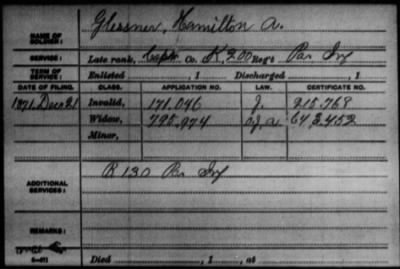 Glessner, Hamilton A.
NAME OF SOLDIER:
SERVICE: Late rank, Co. K, 200 Reg't Pa. Inf
TERM OF SERVICE: Enlisted , 1 Discharged , 1
DATE OF FILING. CLASS. APPLICATION NO. LAW. CERTIFICATE NO.
1871, Dec 21 Invalid, 171,046 J. 215,769
Widow, 795,974 643,452
Minor,
K 130 Pa Inf
ADDITIONAL SERVICES:
REMARKS:
Died , 1 , at